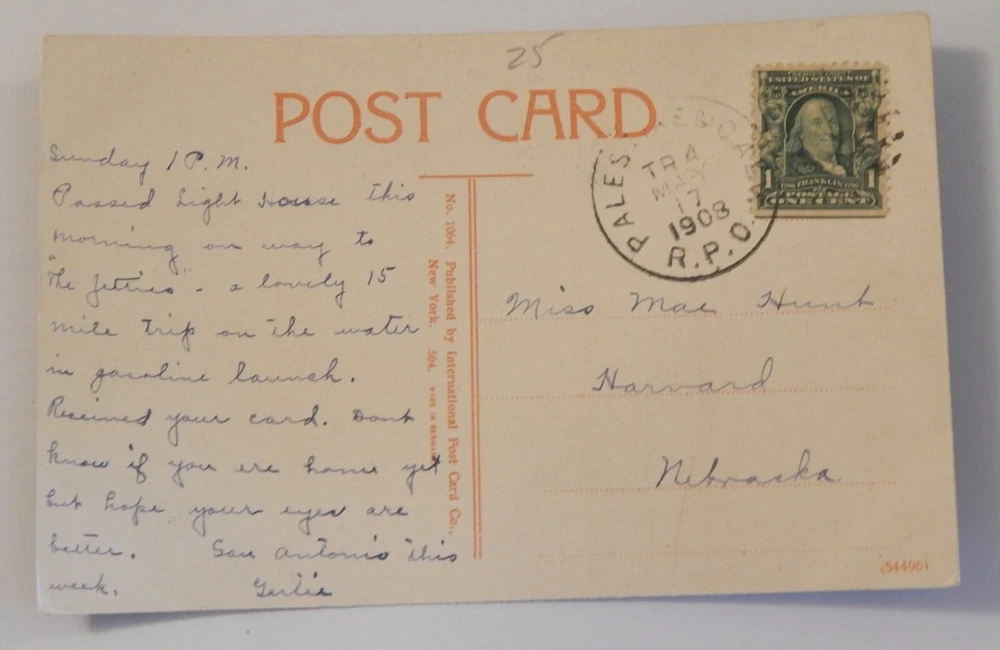 25
POST CARD
SERIES 1902
UNITED STATES OF
AMERICA
1 FRANKLIN 1
POSTAGE
ONE CENT
PALES
TR A
MAY
17
1908
R.P.O.
Sunday 1 P.M.
Passed Light House this
morning on way to
"The Jetties" - a lovely 15
mile trip on the water
in gasoline launch.
Received your card. Dont
know if you ere home yet
but hope your eyes are
better. San Antonio this
week.
No. 1064. Published by International Post Card Co.,
New York. 504. MADE IN GERMANY
Miss Mae Hunt
Harvard
Nebraska
(54496)